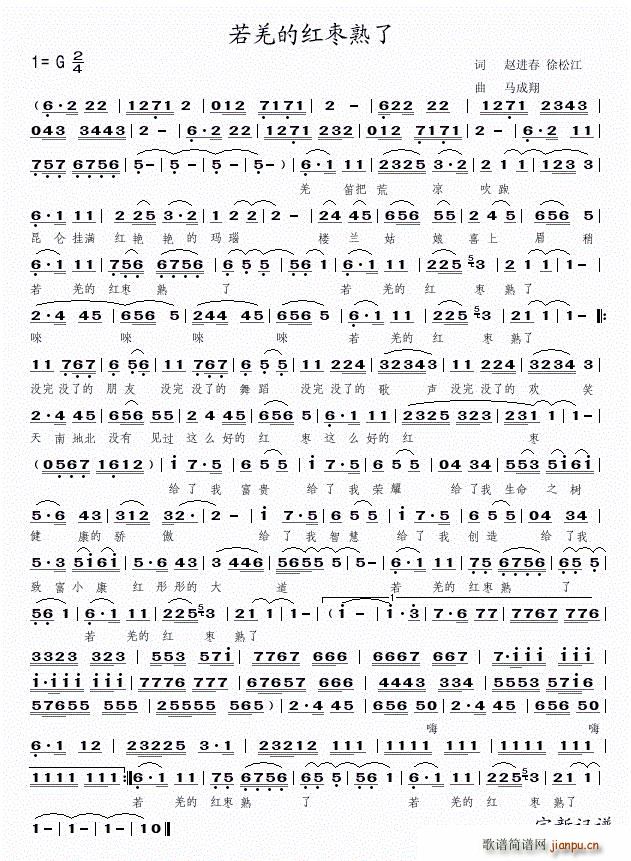 若羌的红枣熟了
1=G 2/4
词 赵进春 徐松江
曲 马成翔
(6·2 22 | 1271 2 | 012 7171 | 2 - | 622 22 | 1271 2343 |
043 3443 | 2 - | 6·2 22 | 1271 232 | 012 7171 | 2 - | 6·2 11 |
757 6756 | 5- | 5- | 5- | 5-) | 6·1 11 | 2325 3·2 | 2 1 1 | 123 3 |
羌 笛把荒 凉 吹跑
6·1 11 | 2 25 3·2 | 1 2 2 | 2 - | 24 45 | 656 55 | 2 4 5 | 656 5 |
昆仑挂满 红艳 艳的 玛瑙 楼兰姑 娘 喜上 眉 梢
6·1 11 | 756 6756 | 6 5 5 | 56 1 | 6·1 11 | 225 3 | 2 1 1 | 1- |
若 羌的 红枣 熟 了 若 羌的 红 枣 熟了
2·4 45 | 656 5 | 244 45 | 656 5 | 6·1 11 | 225 3 | 2 1 1 | 1- :
唻 唻 唻 唻 若 羌的 红 枣 熟了
11 767 | 6 56 | 11 767 | 6 5 5 | 11 224 | 32343 | 11 224 | 3234 3 |
没完没了的 朋友 没完没了的 舞蹈 没完没了的 歌 声 没完没了的 欢 笑
2·4 45 | 656 55 | 2·4 45 | 656 5 | 6·1 11 | 2325 323 | 231 1 | 1- |
天 南地北 没有 见过 这么好的 红 枣 这么好的 红 枣
(0567 1612) | i 7·5 | 6 5 5 | i 7·5 | 6 5 5 | 04 34 | 553 5i6i |
给了我 富贵 给了我 荣耀 给了我 生命 之树
5·6 43 | 312 2 | 2 - | i 7·5 | 6 5 5 | i 7·5 | 6 5 5 | 04 34 |
健 康的骄 傲 给了我 智慧 给了我 创造 给了我
5·3 5i6i | 5·6 43 | 3 446 | 5655 5 | 6·1 11 | 75 6756 | 65 5 |
致富小康 红彤彤的 大 道 若 羌的 红枣熟 了
56 1 | 6·1 11 | 225 3 | 21 1 | 1- | (i- | i·3 | 7·6 77 | 7767 776 |
若 羌的 红 枣 熟了
3323 323 | 553 57i | 7767 666 | 6667 667 | 7·iii iii |
i·iii iii | 7776 777 | 67657 667 | 4443 334 | 5553 557 |
57655 555 | 25555 565) | 2·4 45 | 656 50 | 2·4 45 | 656 50 |
嗨 嗨
6·1 12 | 23225 3·1 | 2322 222 | 1111 1111 | 1111 1111 |
1111 111 : 6·1 11 | 75 6756 | 65 5 | 56 1 | 6·1 11 | 225 3 | 21 1 |
若 羌的 红枣熟 了 若 羌的 红 枣 熟了
1- | 1- | 1- | 10 ‖
歌谱简谱网
jianpu.cn